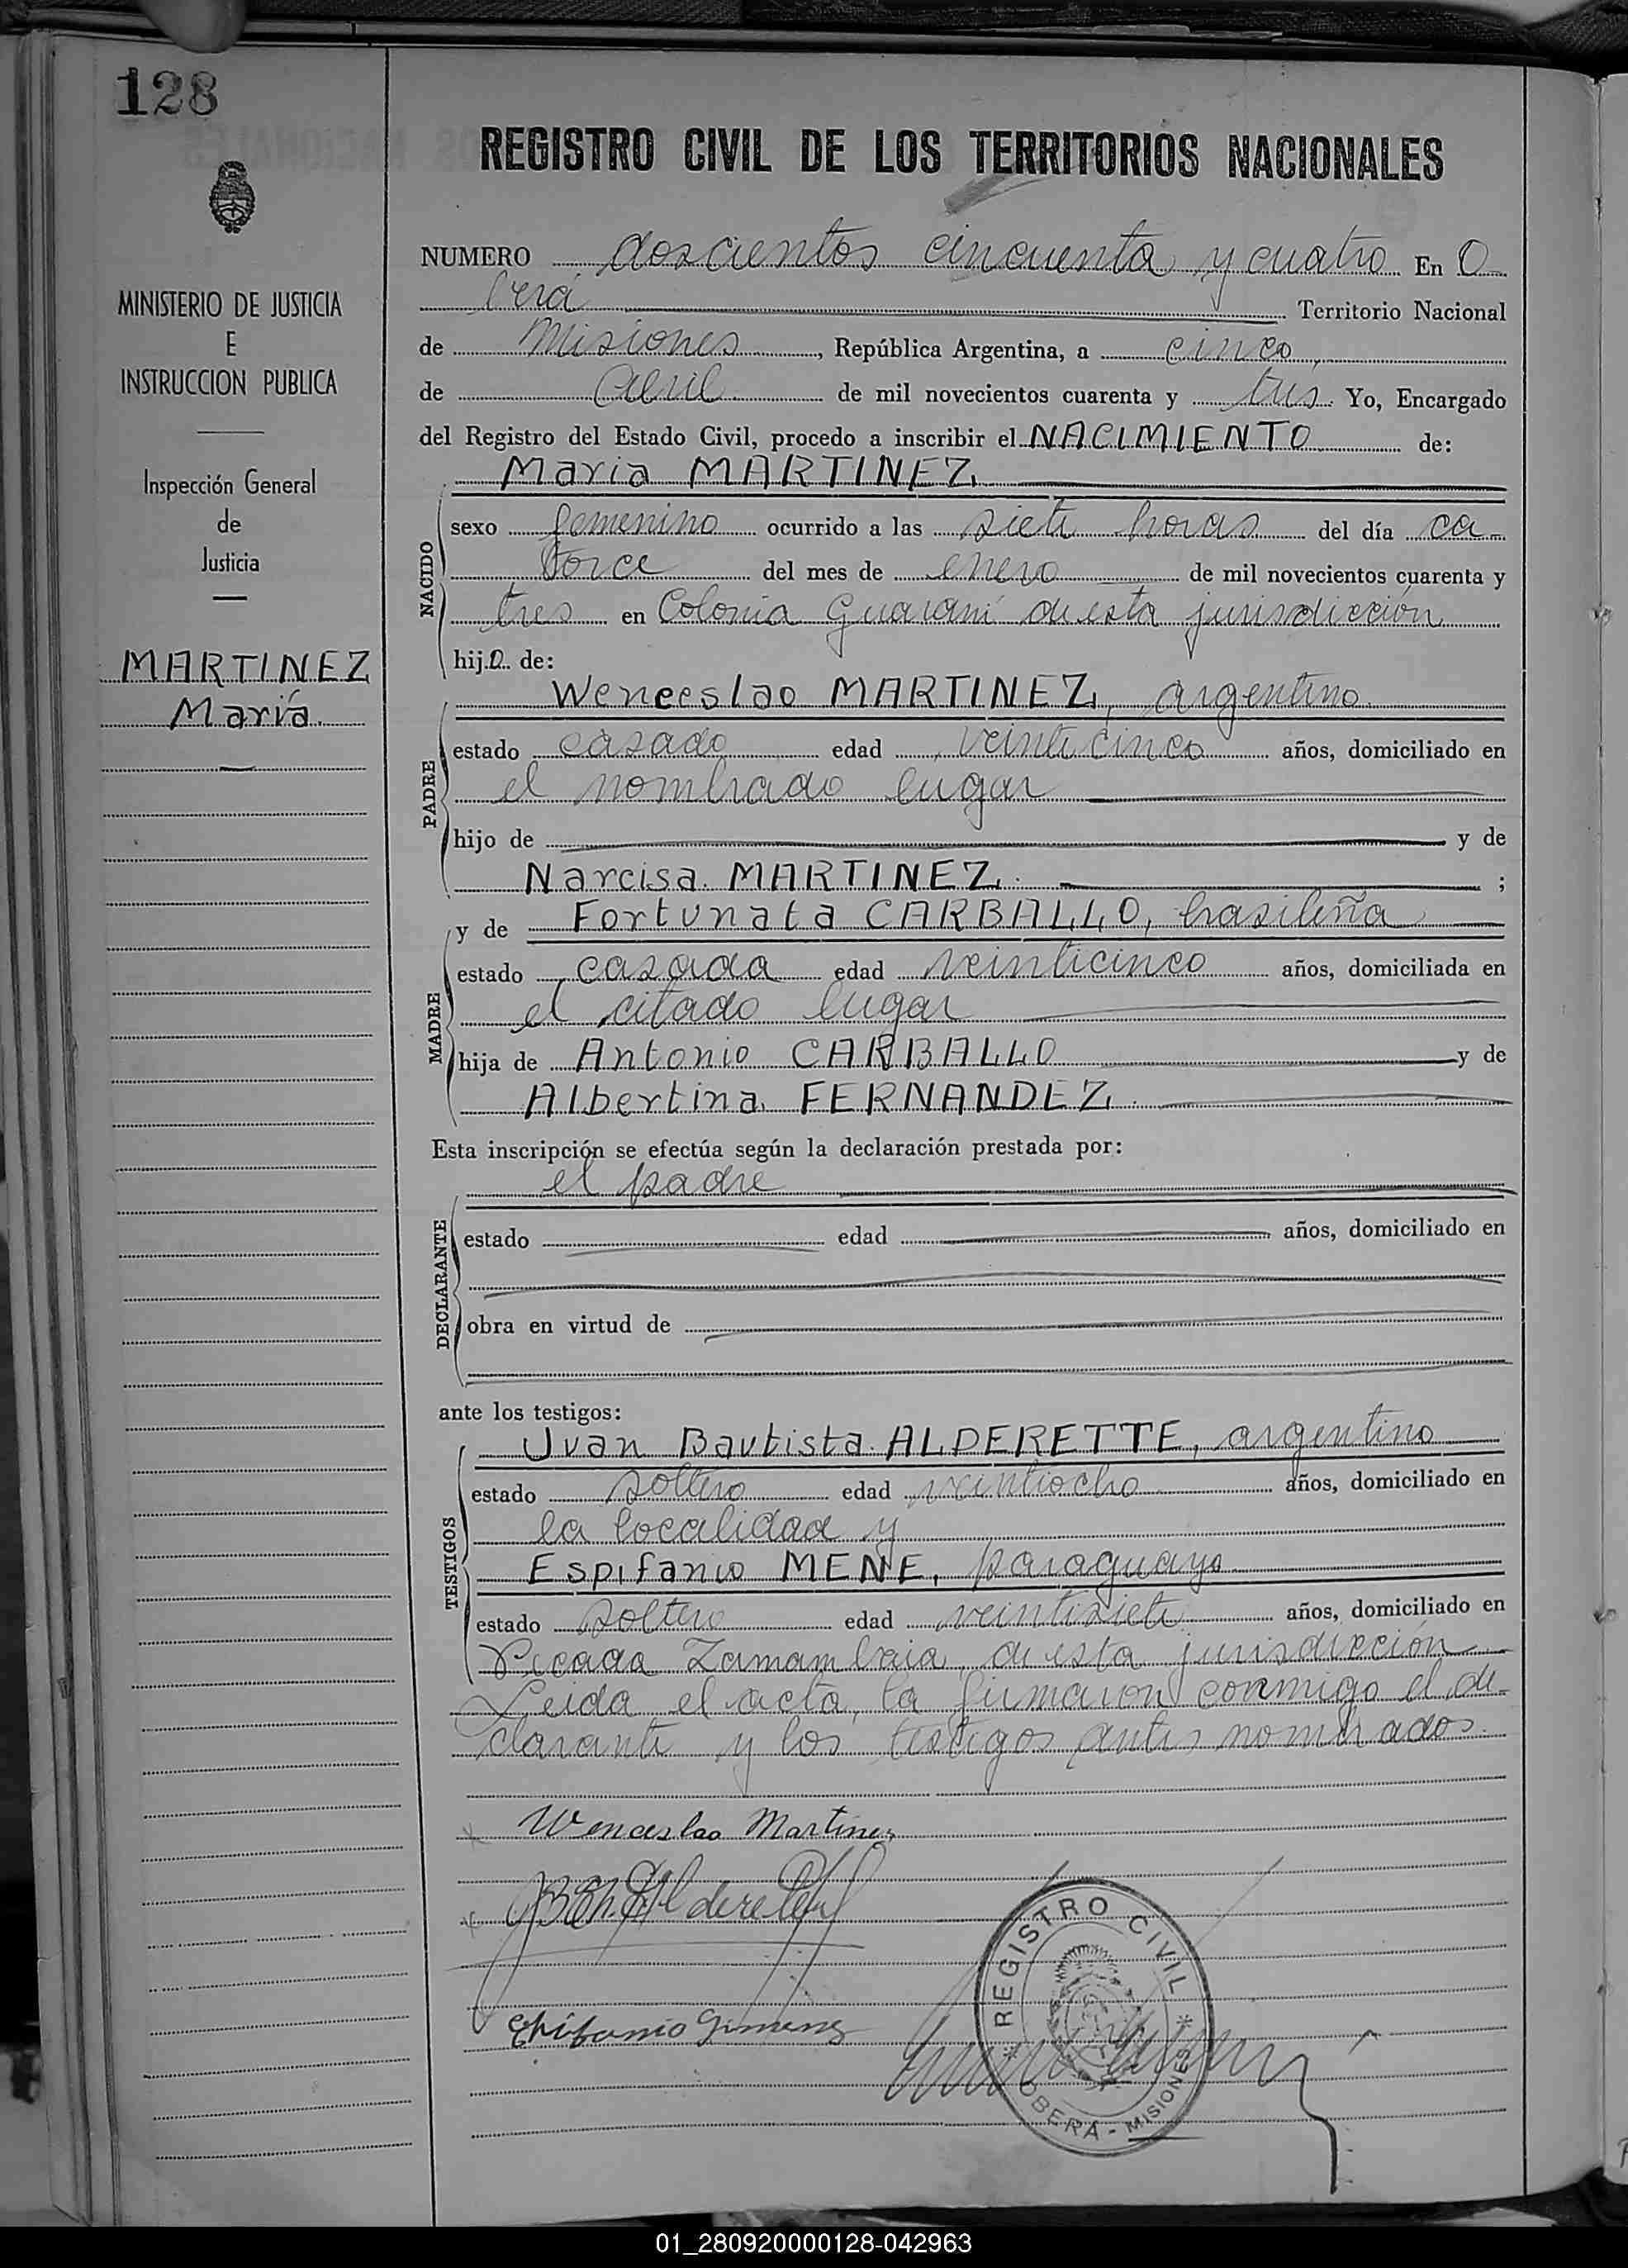 128
MINISTERIO DE JUSTICIA
E
INSTRUCCION PUBLICA
Inspección General
de
Justicia
MARTINEZ
María.
REGISTRO CIVIL DE LOS TERRITORIOS NACIONALES
NUMERO doscientos cincuenta y cuatro En O
berá Territorio Nacional
de Misiones, República Argentina, a cinco,
de abril de mil novecientos cuarenta y tres. Yo, Encargado
del Registro del Estado Civil, procedo a inscribir el NACIMIENTO de:
María MARTINEZ,
NACIDO
sexo femenino ocurrido a las siete horas del día ca-
torce del mes de enero de mil novecientos cuarenta y
tres en Colonia Guaraní de esta jurisdicción
hija de:
PADRE
Wenceslao MARTINEZ, argentino
estado casado edad veinticinco años, domiciliado en
el nombrado lugar
hijo de y de
Narcisa MARTINEZ. ;
MADRE
y de Fortunata CARBALLO, brasileña
estado casada edad veinticinco años, domiciliada en
el citado lugar
hija de Antonio CARBALLO y de
Albertina FERNANDEZ.
Esta inscripción se efectúa según la declaración prestada por:
DECLARANTE
el padre
estado edad años, domiciliado en
obra en virtud de
ante los testigos:
TESTIGOS
Juan Bautista ALDERETTE, argentino
estado soltero edad veintiocho años, domiciliado en
la localidad y
Espifanio MENE, paraguayo
estado soltero edad veintisiete años, domiciliado en
Picada Zamambaia, de esta jurisdicción
Leida el acta, la firmaron conmigo el de-
clarante y los testigos antes nombrados.
Wenceslao Martinez
Alderete
Epifanio Gimenez
REGISTRO CIVIL
OBERÁ - MISIONES
01_280920000128-042963